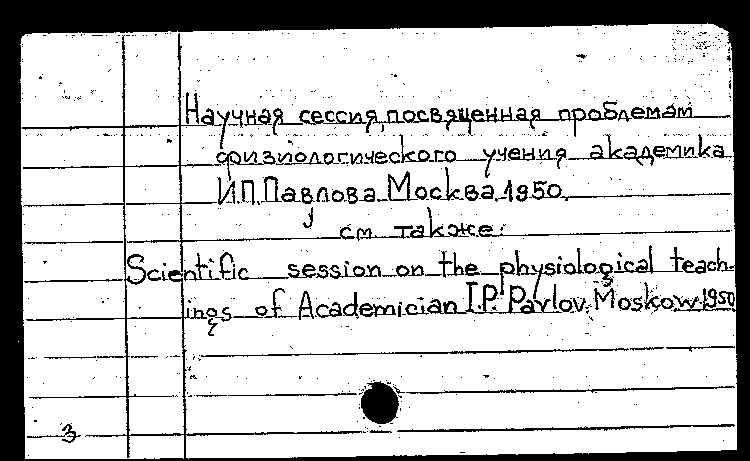 Научная сессия, посвященная проблемам
физиологического учения академика
И.П. Павлова, Москва, 1950.
см также:
Scientific session on the physiological teach-
ings of Academician I.P. Pavlov, Moskow. 1950
3